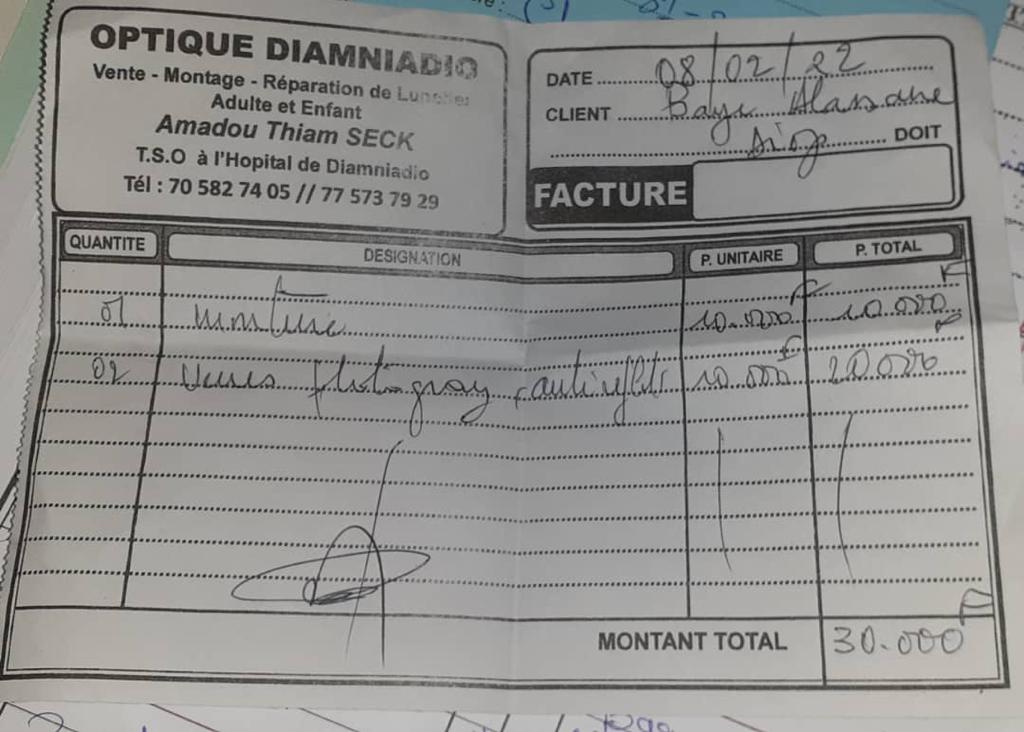 OPTIQUE DIAMNIADIO
Vente - Montage - Réparation de Lunettes
Adulte et Enfant
Amadou Thiam SECK
T.S.O à l'Hopital de Diamniadio
Tél : 70 582 74 05 // 77 573 79 29
DATE 08/02/22
CLIENT Baye Alassane
Diop DOIT
FACTURE
QUANTITE DESIGNATION P. UNITAIRE P. TOTAL
01 monture 10.000 F 10.000 F
02 Verres Photogray antireflets 10.000 F 20.000 F
MONTANT TOTAL 30.000 F